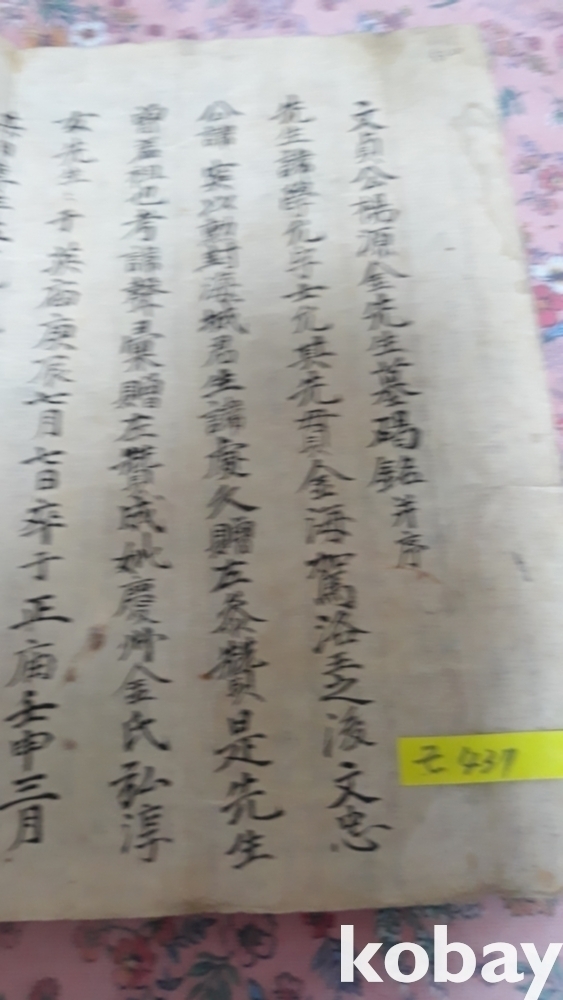 文貞公源金先生墓碣銘并序
先生諱學字士允其先貫金海駕洛王之後文忠
公諱以勳封海城君生諱慶久贈左參贊是先生
曾祖也考諱聲彙贈左贊成妣慶州金氏弘淳
女先生于英庙庚辰七月七日卒于正庙壬申三月
437
kobay